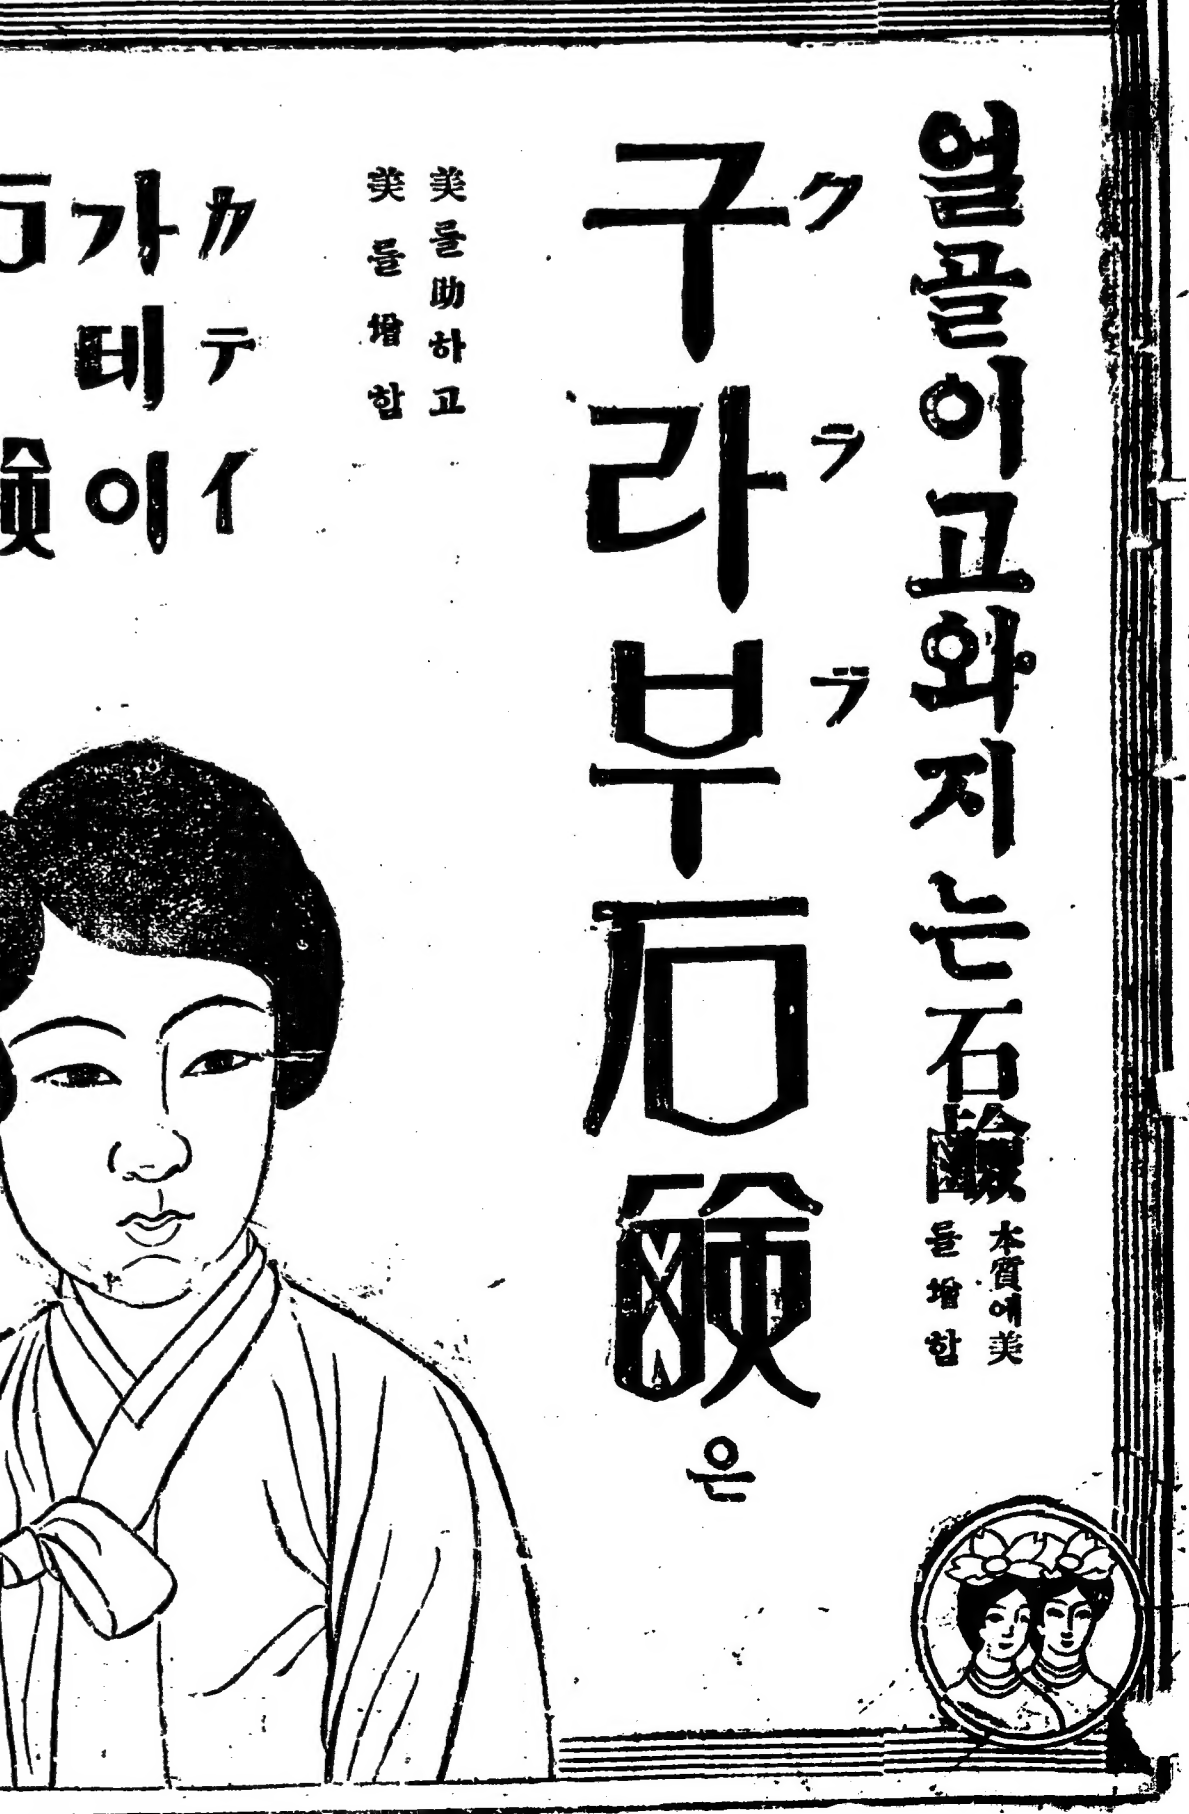 얼골이고와지는石鹼
本質에美
를增함
クラブ
구라부石鹸은
美를助하고
美를增함
カテイ
가테이
石鹸